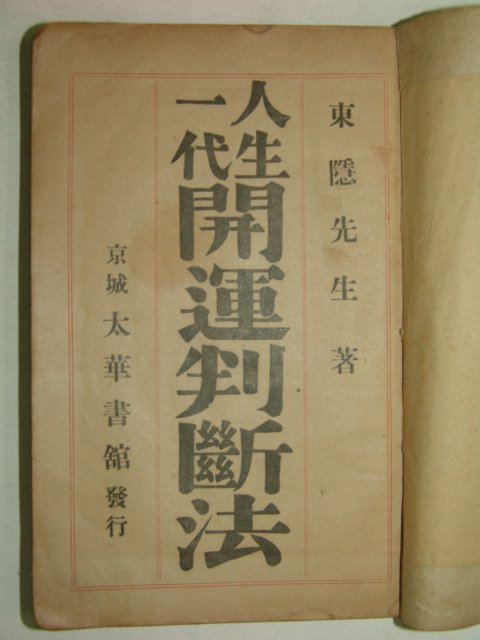 東隱先生著
人生一代開運判斷法
京城太華書舘發行